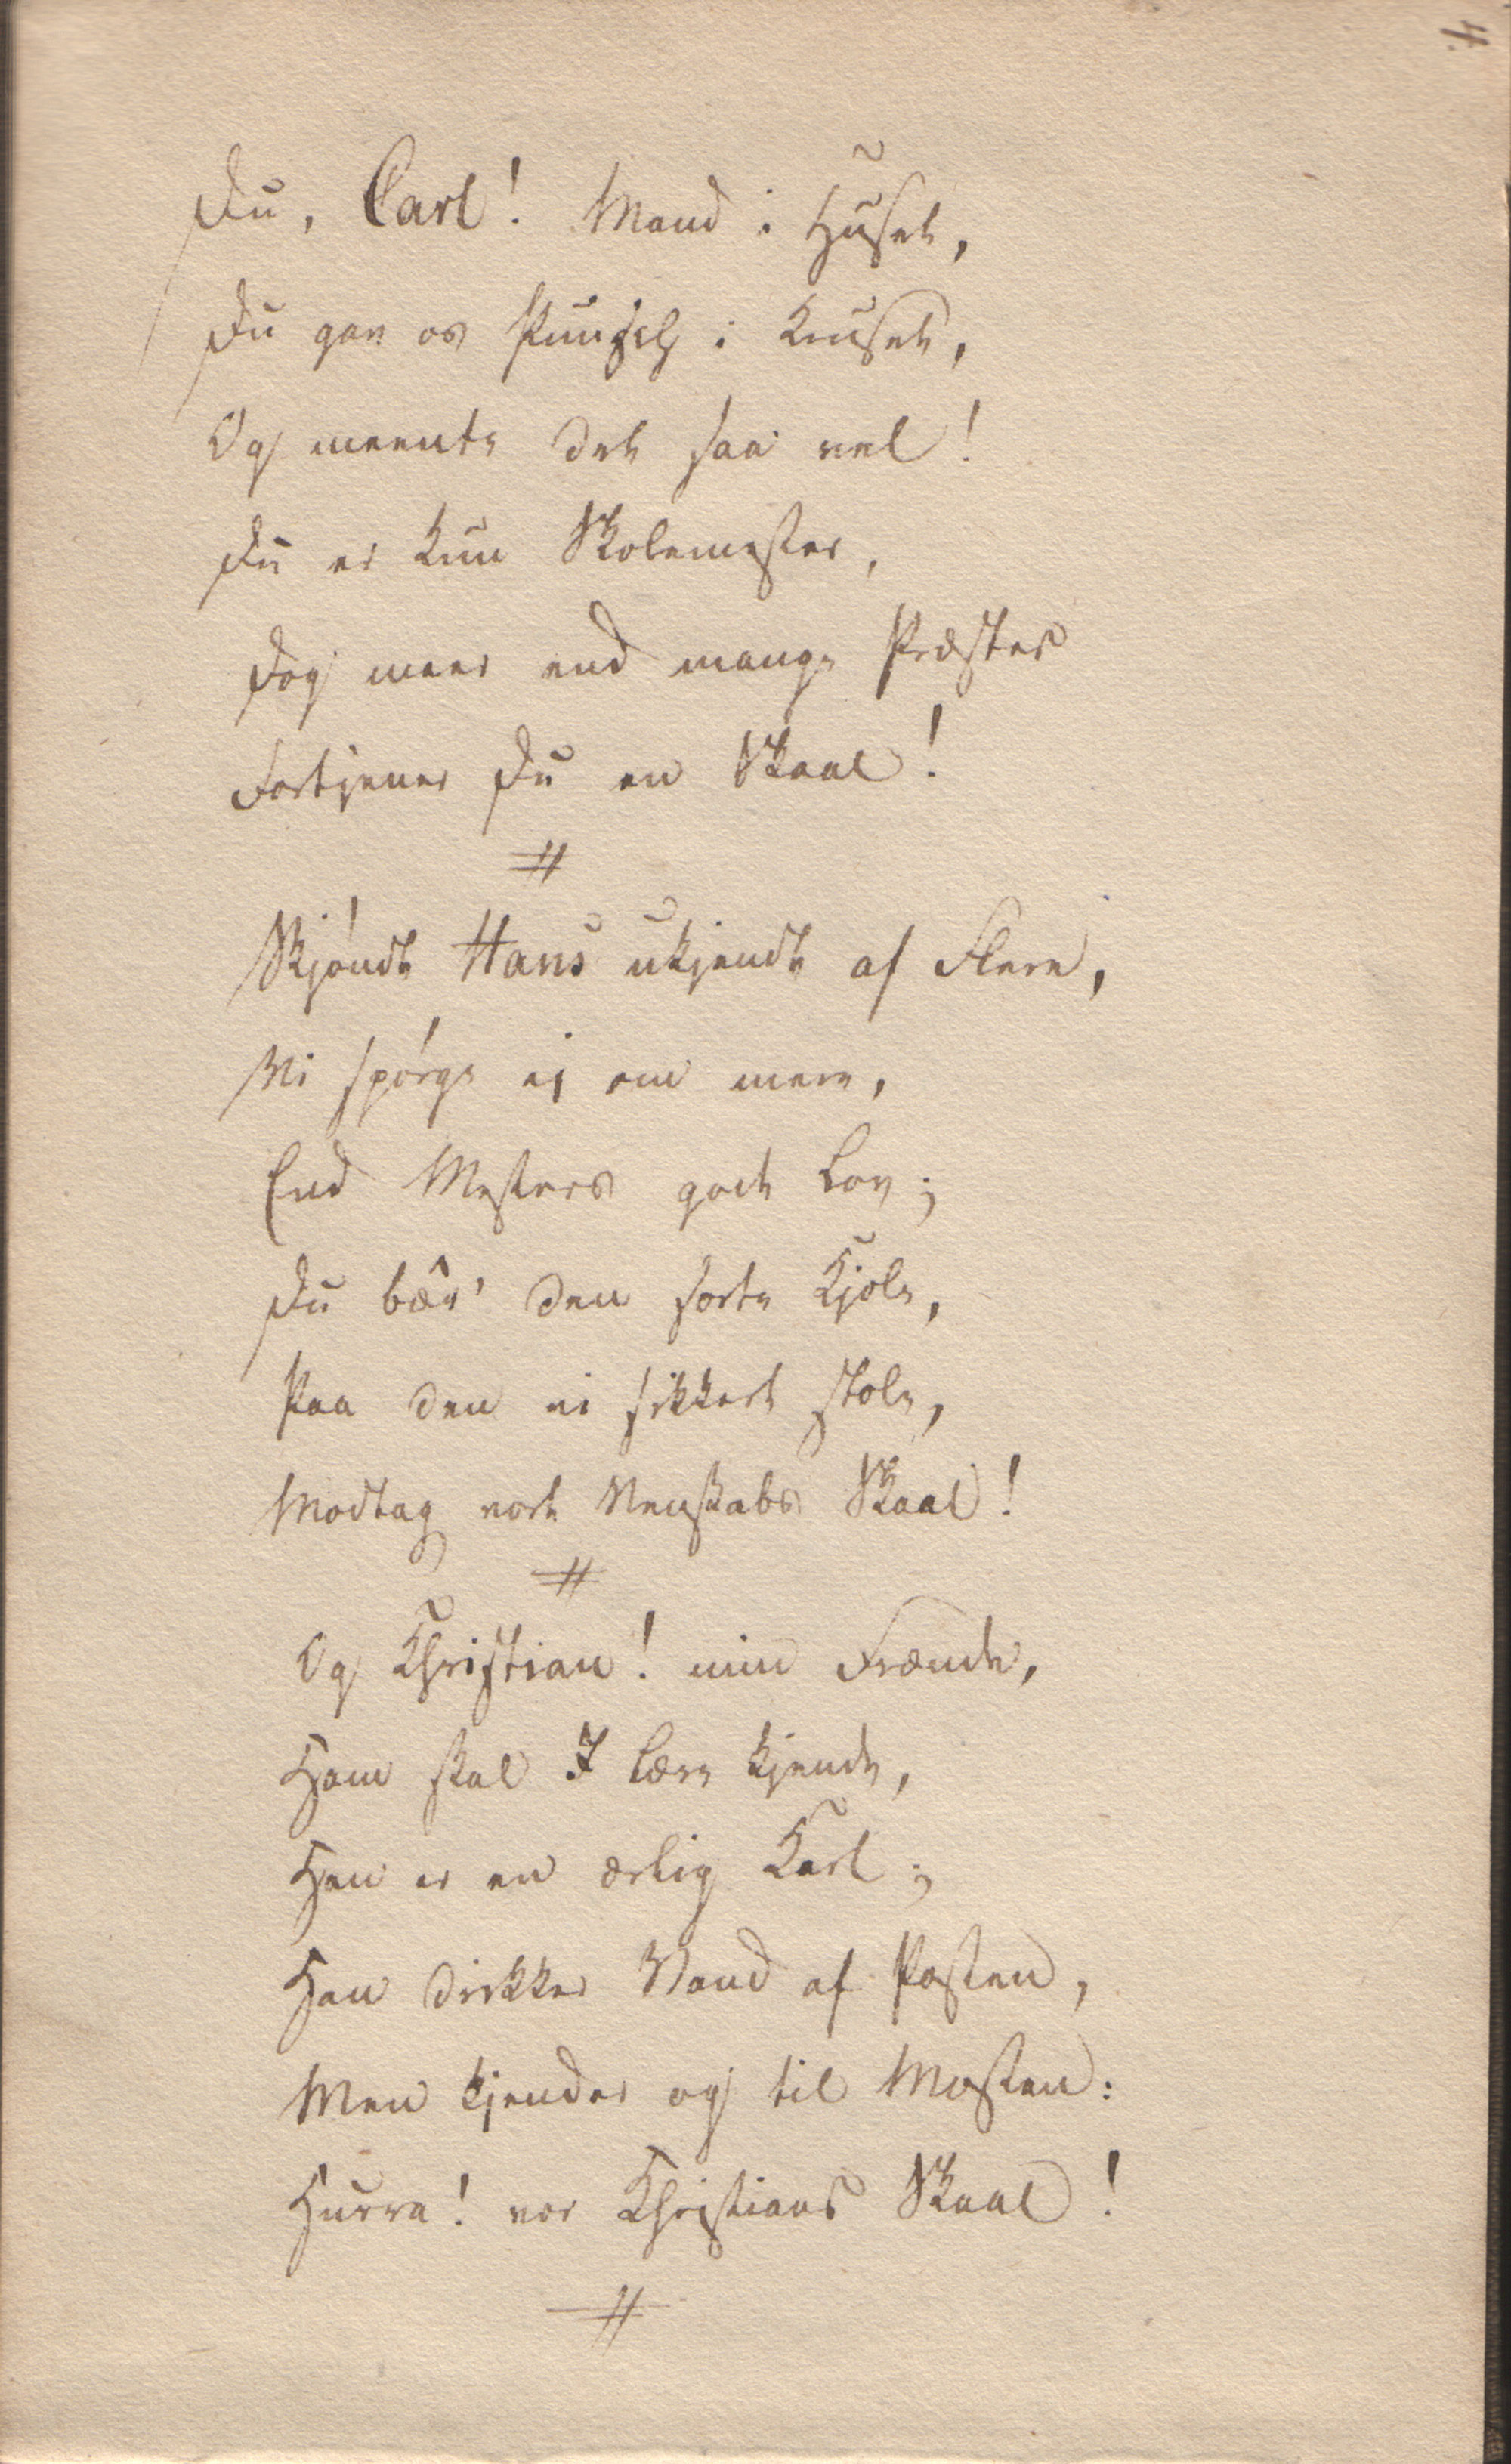 4.
Du, Carl! Mand i Huset,
Du gav os Puntsch i Kruset,
Og meente det saa vel!
Du er kun Skolemester,
Dog meer end mange Præster
Fortjener Du en Skaal!
Skjøndt Hans ukjendt af Flere,
Vi spørge ej om mere,
End Mesters godt Lov;
Du bær' den sorte Kjole,
Paa den vi sikkert stole,
Modtag vort Venskabs Skaal!
Og Christian! min Frænde,
Ham skal I lære kjende,
Han er en ærlig Karl;
Han drikker Vand af Posten,
Men kjender og til Mosten:
Hurra! vor Christians Skaal!